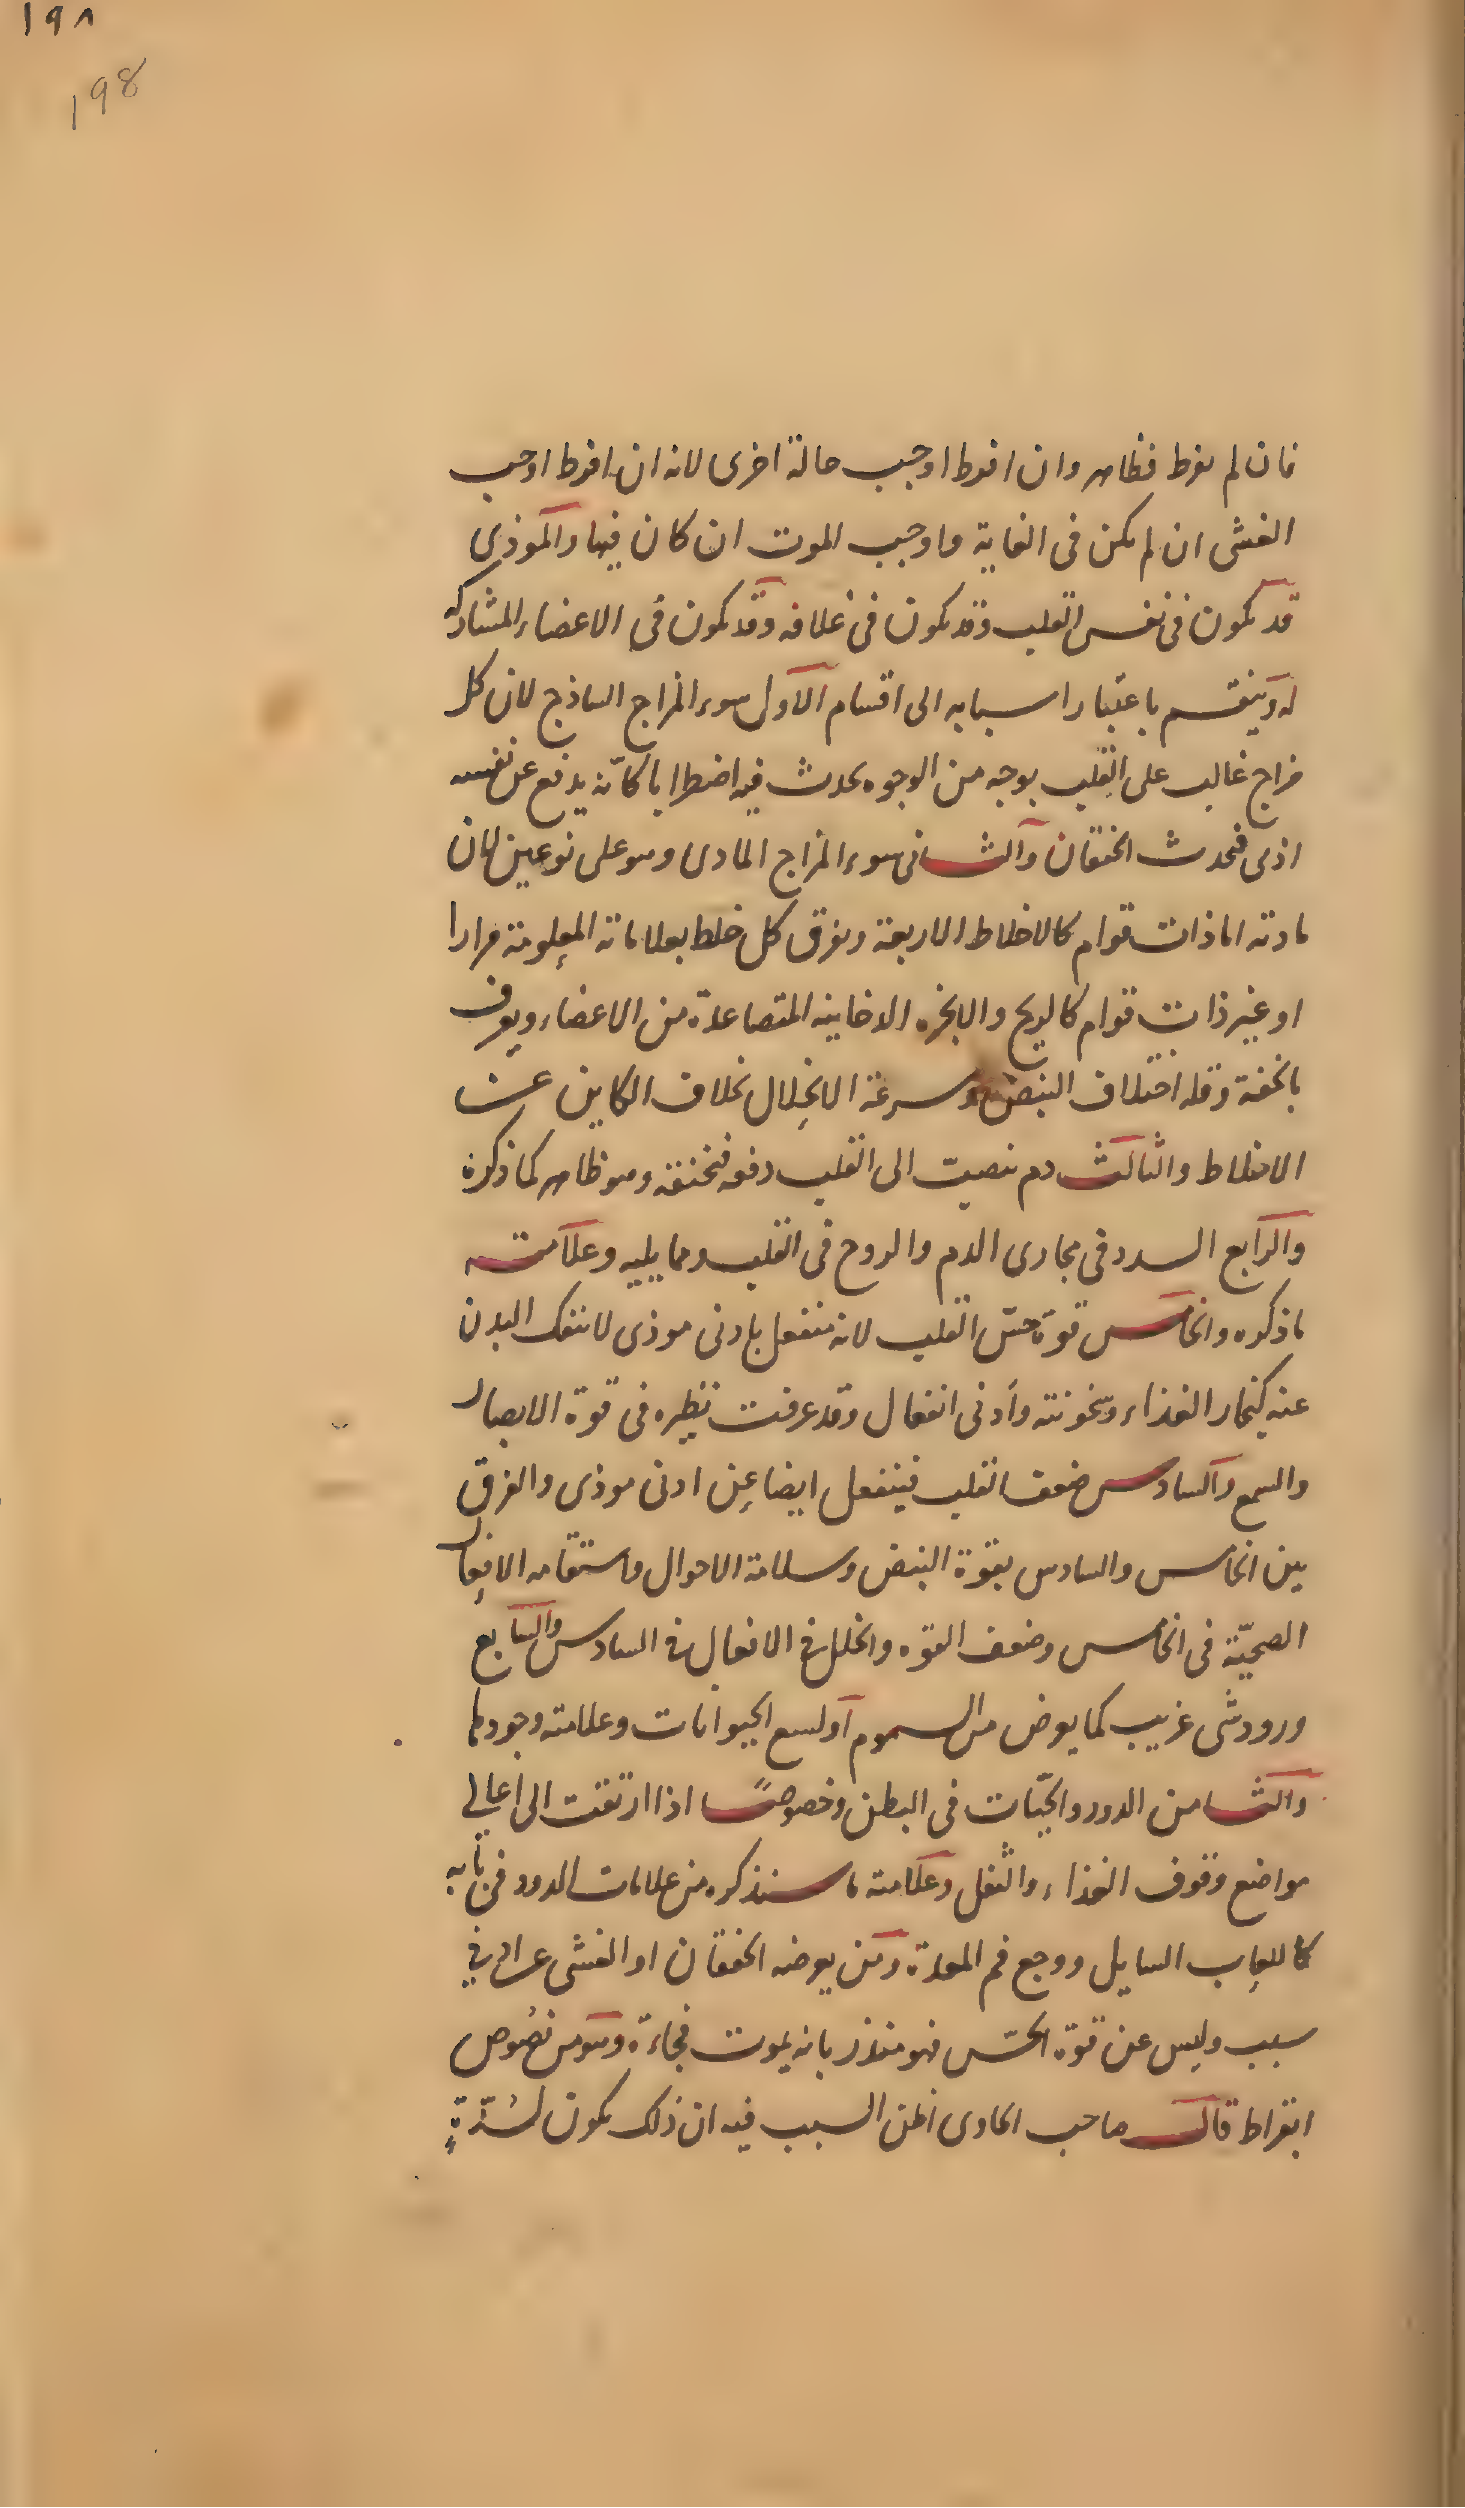 ١٩٨
198
فان لم يفرط فظاهر وان افرط اوجب حالة اخرى لانه ان افرط اوجب
الغشى ان لم يكن فى الغاية واوجب الموت ان كان فيها والموذى
قد يكون فى نفس القلب وقد يكون فى غلافه وقد يكون فى الاعضاء المشاركة
له وينقسم باعتبار اسبابه الى اقسام الاول سوء المزاج الساذج لان كل
مزاج غالب على القلب بوجه من الوجوه يحدث فيه اضطرابا كانّه يدفع عن نفسه
اذى فيحدث الخفقان والثانى سوء المزاج المادى وهو على نوعين لان
مادته اما ذات قوام كالاخلاط الاربعة ويفرق كل خلط بعلاماته المعلومة مرارا
او غير ذات قوام كالريح والابخره الدخانيه المتصاعدة من الاعضاء ويعرف
بالخفة وقله اختلاف النبض وسرعة الانحلال بخلاف الكاين عن
الاخلاط والثالث دم ينصبّ الى القلب دفعه فيخنقه وهو ظاهر كما ذكره
والرابع السدد فى مجارى الدم والروح فى القلب وما يليه وعلامته
ما ذكره والخامس قوة حسّ القلب لانه منفعل بادنى موذى لا ينفك البدن
عنه كبخار الغذاء وسخونته وأدنى انفعال وقد عرفت نظيره فى قوة الابصار
والسمع والسادس ضعف القلب فينفعل ايضا عن ادنى موذى والفرق
بين الخامس والسادس بقوة النبض وسلامة الاحوال واستقامه الافعال
الصحيّة فى الخامس وضعف القوه والخلل فى الافعال فى السادس والسابع
ورود شى غريب كما يعرض من السموم أو لسع الحيوانات وعلامته وجودها
والثامن الدود والحيّات فى البطن وخصوصًا اذا ارتقت الى أعالي
مواضع وقوف الغذاء والثفل وعلامته ما سنذكره من علامات الدود فى بابه
كاللعاب السايل ووجع فم المعدة ومن يعرضه الخفقان او الغشى عن ادنى
سبب وليس عن قوة الحسّ فهو منذر بانه يموت فجاءة وهو من نصوص
ابقراط قال صاحب الحاوى اظن السبب فيه ان ذلك يكون لشدّةٍ